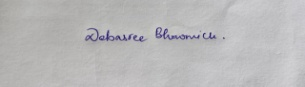 Debasree Bhowmick.